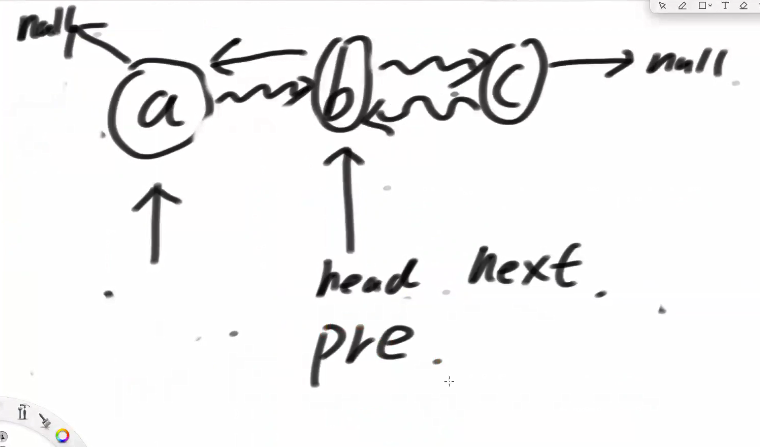 null
a b c null
head next
pre